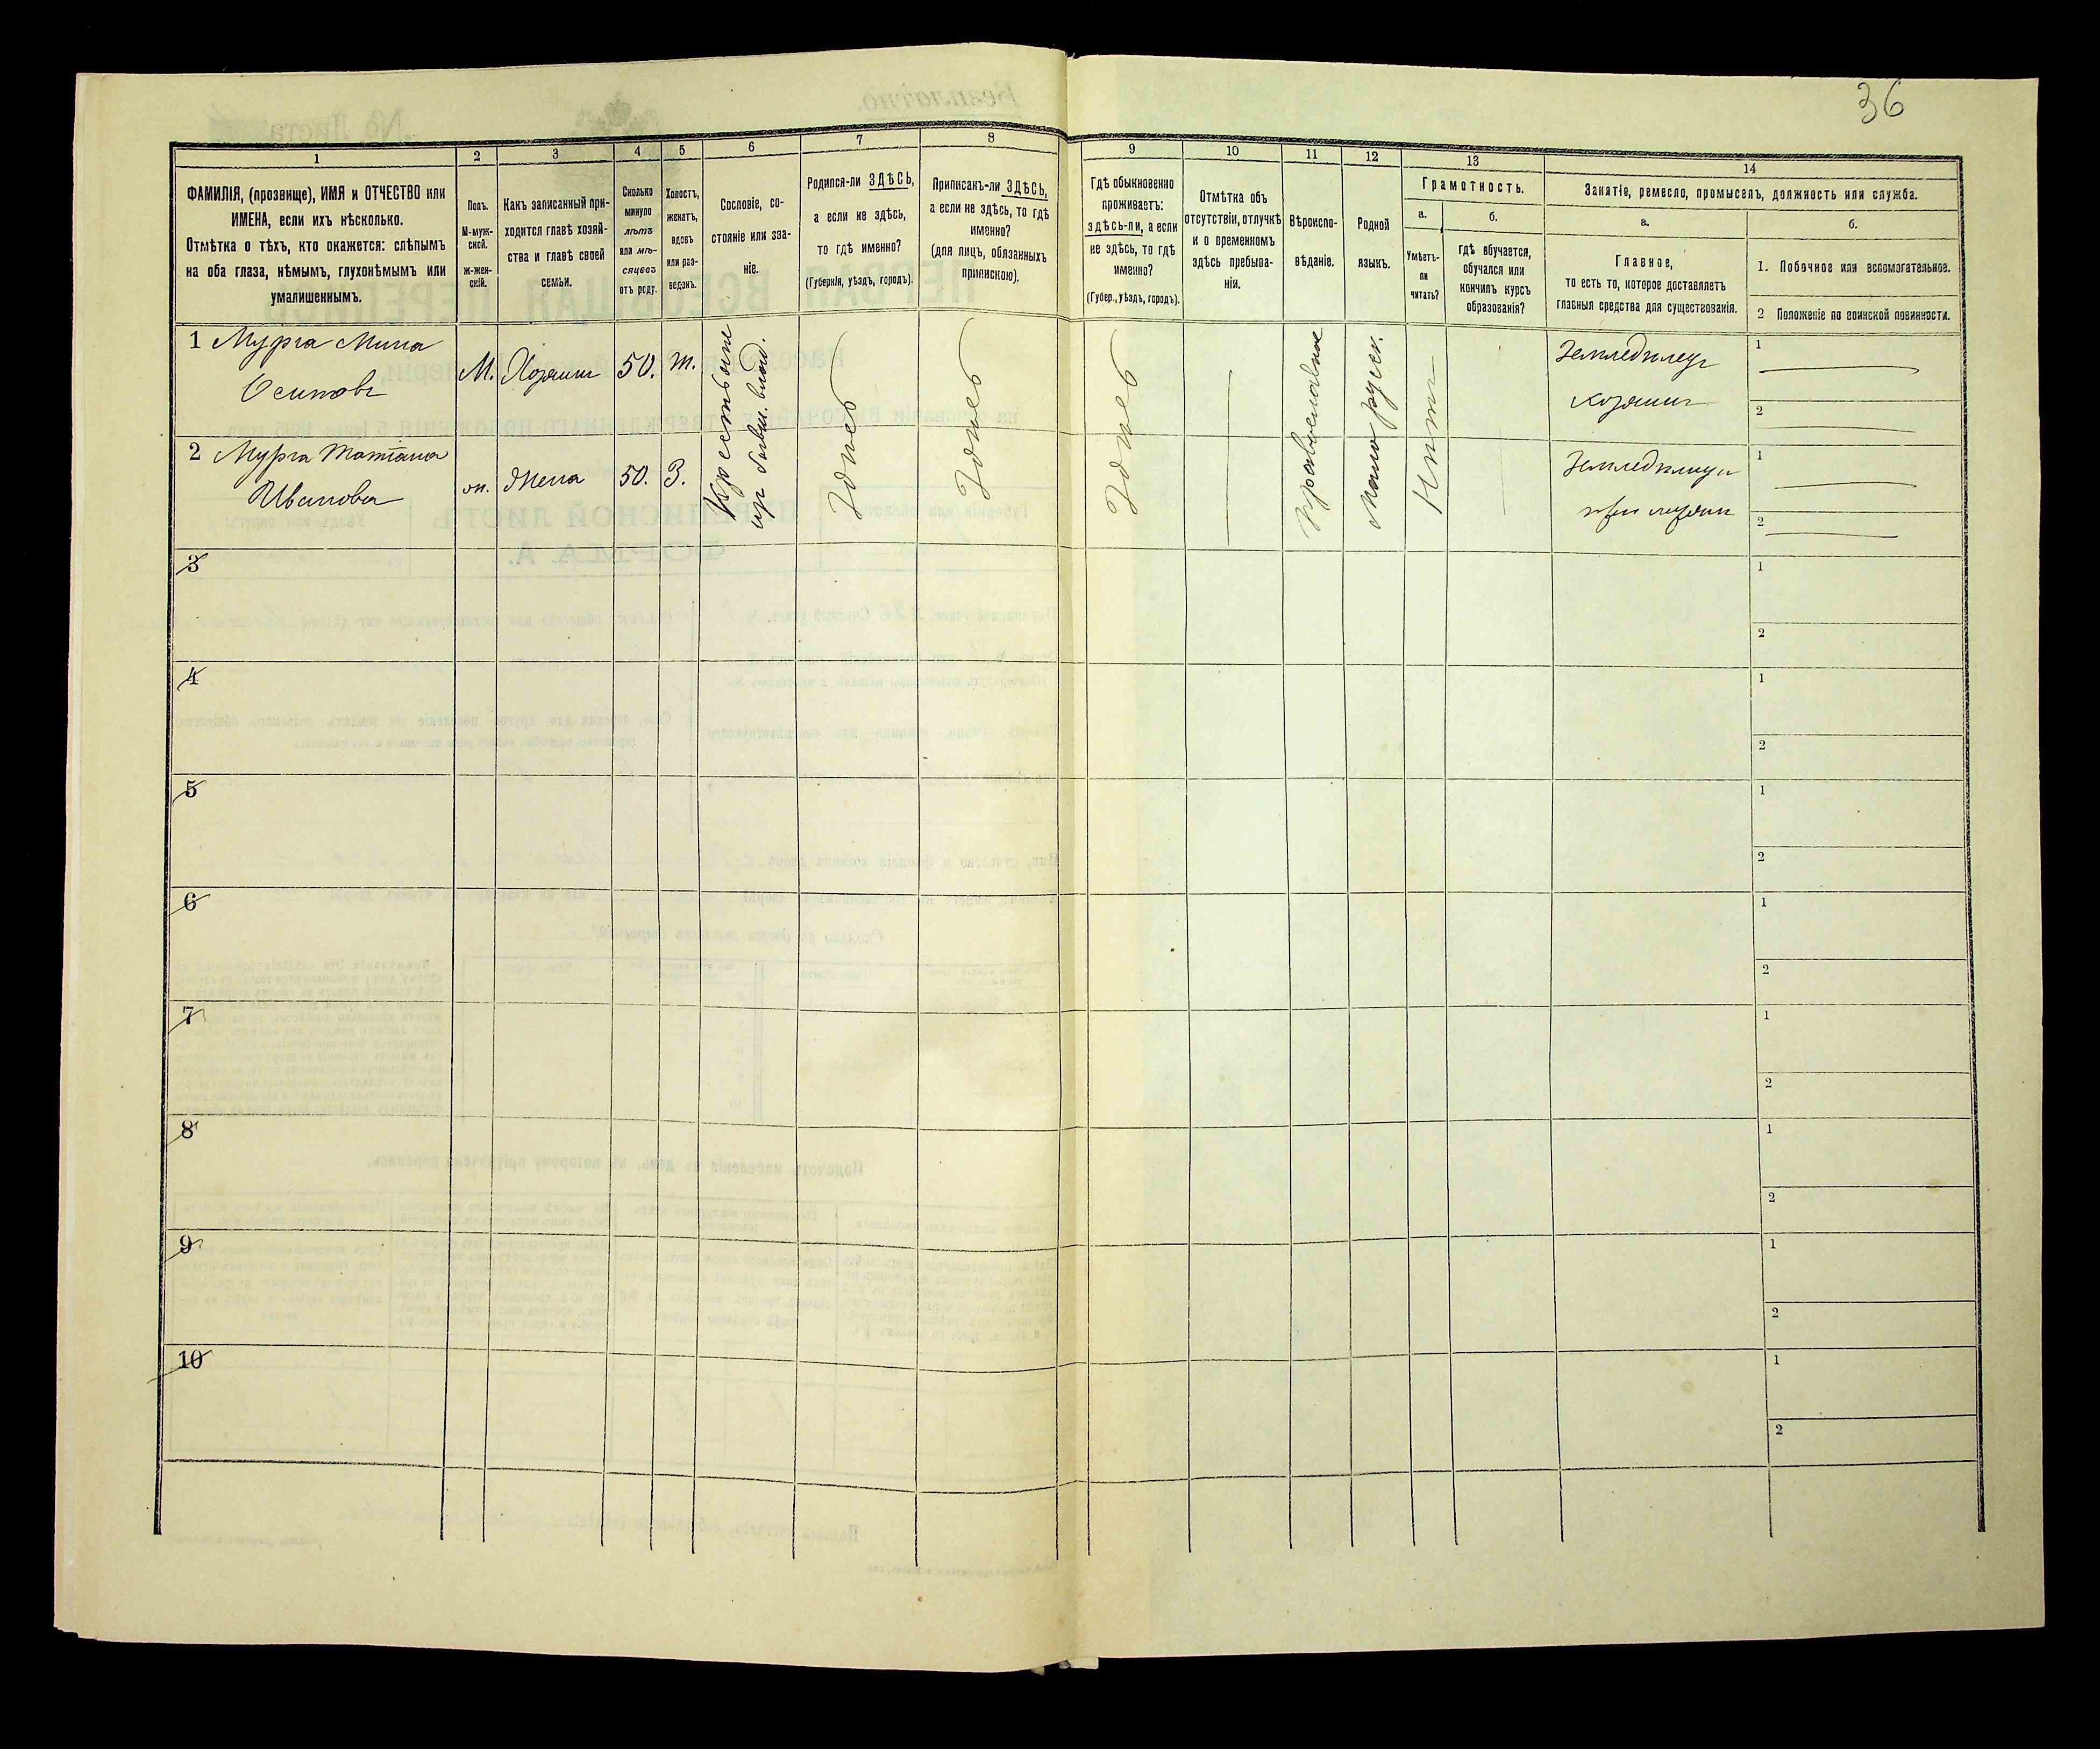 36
1
2
3
4
5
6
7
8
9
10
11
12
13
14
ФАМИЛІЯ, (прозвище), ИМЯ и ОТЧЕСТВО или
ИМЕНА, если ихъ нѣсколько.
Отмѣтка о тѣхъ, кто окажется: слѣпымъ
на оба глаза, нѣмымъ, глухонѣмымъ или
умалишеннымъ.
Полъ.
М-муж-
ской.
Ж-жен-
скій.
Какъ записанный при-
ходится главѣ хозяй-
ства и главѣ своей
семьи.
Сколько
минуло
лѣтъ
или мѣ-
сяцевъ
отъ роду.
Холостъ,
женатъ,
вдовъ
или раз-
веденъ.
Сословіе, со-
стояніе или зва-
ніе.
Родился-ли ЗДѢСЬ,
а если не здѣсь,
то гдѣ именно?
(Губернія, уѣздъ, городъ).
Приписанъ-ли ЗДѢСЬ,
а если не здѣсь, то гдѣ
именно?
(для лицъ, обязанныхъ
припискою).
Гдѣ обыкновенно
проживаетъ:
здѣсь-ли, а если
не здѣсь, то гдѣ
именно?
(Губер., уѣздъ, городъ).
Отмѣтка объ
отсутствіи, отлучкѣ
и о временномъ
здѣсь пребыва-
ніи.
Вѣроиспо-
вѣданіе.
Родной
языкъ.
Грамотность.
а.
Умѣетъ-
ли
читать?
б.
гдѣ обучается,
обучался или
кончилъ курсъ
образованія?
Занятіе, ремесло, промыселъ, должность или служба.
а.
Главное,
то есть то, которое доставляетъ
главныя средства для существованія.
б.
1. Побочное или вспомогательное.
2 Положеніе по воинской повинности.
1 Мурга Мина
Осиповъ
М.
Хозяинъ
50.
Крестьяне
Здѣсь
Здѣсь
Здѣсь
Православное
Малорусск.
Нѣтъ
Земледѣлецъ
хозяинъ
1
2
2 Мурга Татіана
Иванова
Жена
50.
З.
Земледѣлица
при мужѣ
1
2
3
1
2
4
1
2
5
1
2
6
1
2
7
1
2
8
1
2
9
1
2
10
1
2